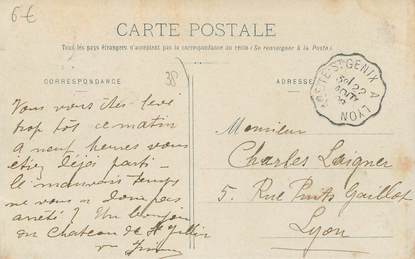 6€
CARTE POSTALE
Tous les pays étrangers n'acceptent pas la correspondance au recto (Se renseigner à la Poste).
CORRESPONDANCE
38
ADRESSE
STE ST GENIX A LYON
22
AOUT
Vous vous êtes levé
trop tôt ce matin
a neuf heures vous
étiez déjà parti -
le mauvais temps
ne vous a donc pas
arrêté? Un bonjour
du Chateau de St
Monsieur
Charles Laigner
5, Rue Puits Gaillot
Lyon